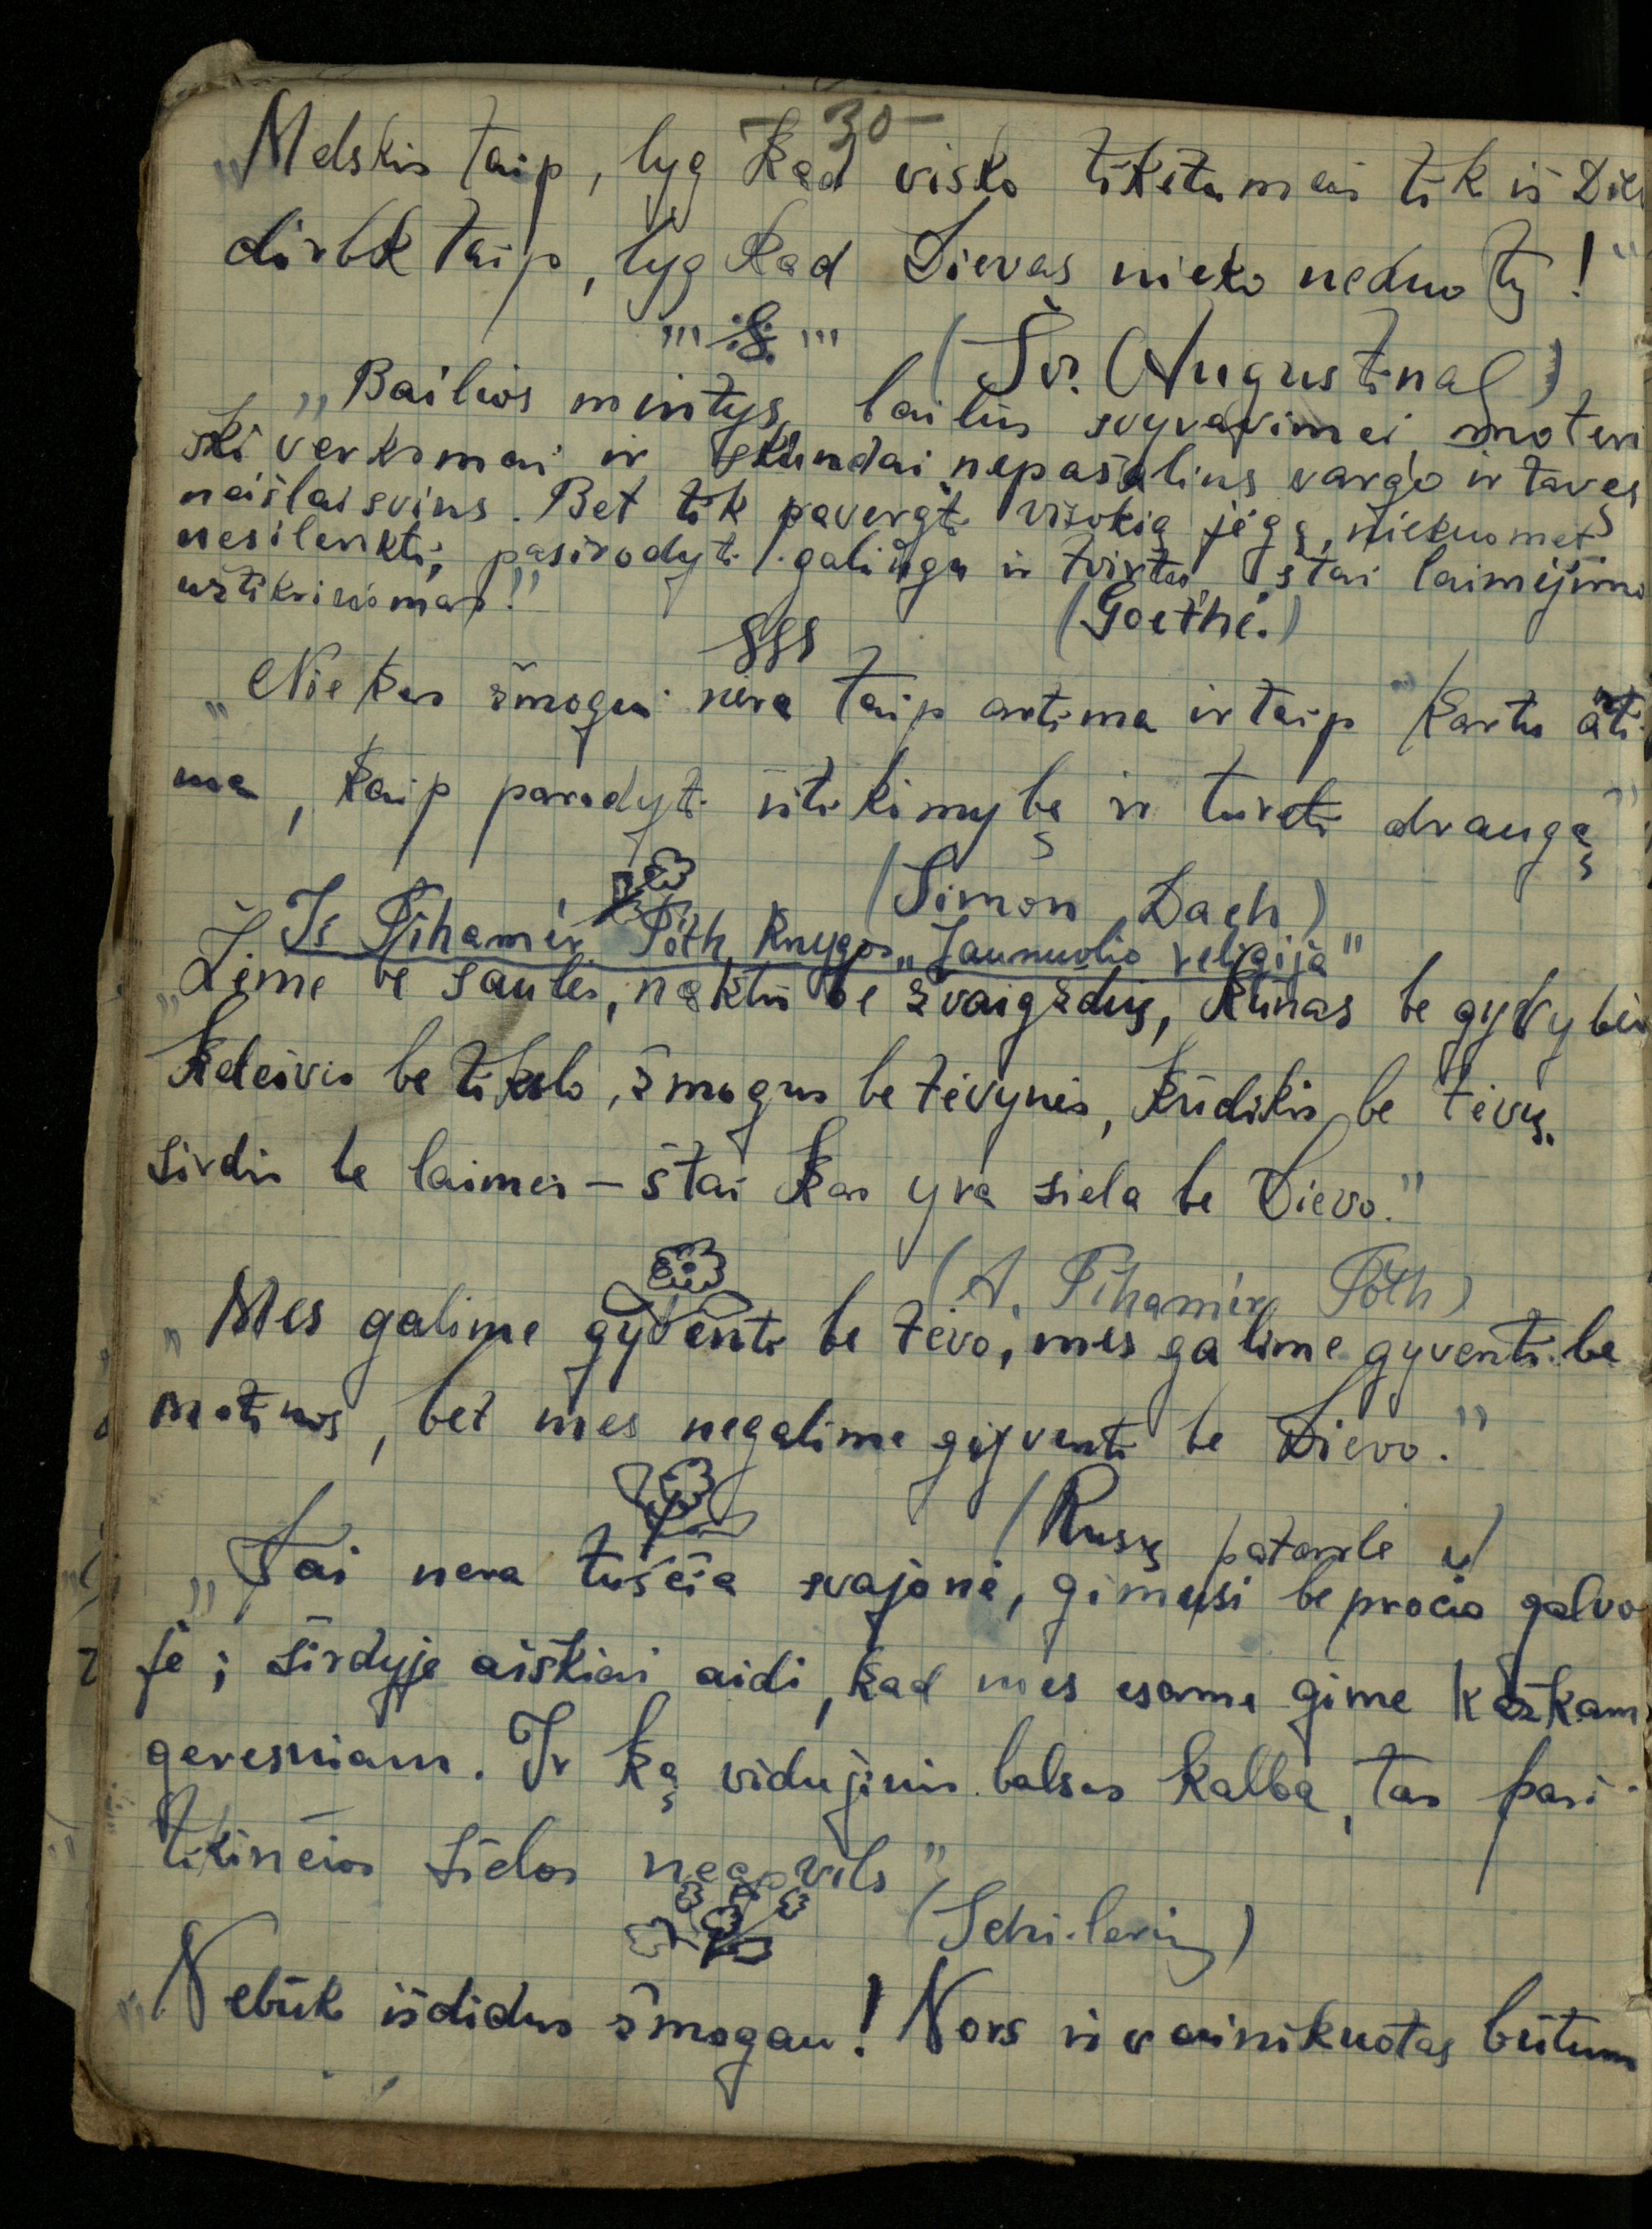 - 30 -
„Melskis taip, lyg kad visko tikėtumeis tik iš Die
dirbk taip, lyg kad Dievas nieko neduotų!"
(Šv. Augustinas)
„Bailios mintys, bailūs svyravimai, moteri
ški verksmai ir skundai nepašalins vargo ir tavęs
neišlaisvins. Bet tik pavergti visokią jėgą, niekuomet
nesilenkti, pasirodyti galingu ir tvirtu štai laimėjimo
užtikrinimas!"
(Goethė.)
§§§
„Niekas žmogui nėra taip artima ir taip kartu ati
ma, kaip parodyti ištikimybę ir turėti draugą"
(Simon Dach)
Iš Tihamér Tóth knygos „Jaunuolio religija"
„Žemė be saulės, naktis be žvaigždžių, kūnas be gyvybės
keleivis be tikslo, žmogus be tėvynės, kūdikis be tėvų,
širdis be laimės – štai kas yra siela be Dievo."
(A. Tihamér Tóth)
„Mes galime gyventi be tėvo, mes galime gyventi be
motinos, bet mes negalime gyventi be Dievo."
(Rusų patarlė)
„Tai nėra tuščia svajonė, gimusi bepročio galvo
je; širdyje aiškiai aidi, kad mes esame gimę kažkam
geresniam. Ir ką vidujinis balsas kalba, tas pasi
tikinčios sielos neapvils"
(Schileris)
„Nebūk išdidus žmogau! Nors ir vainikuotas būtum